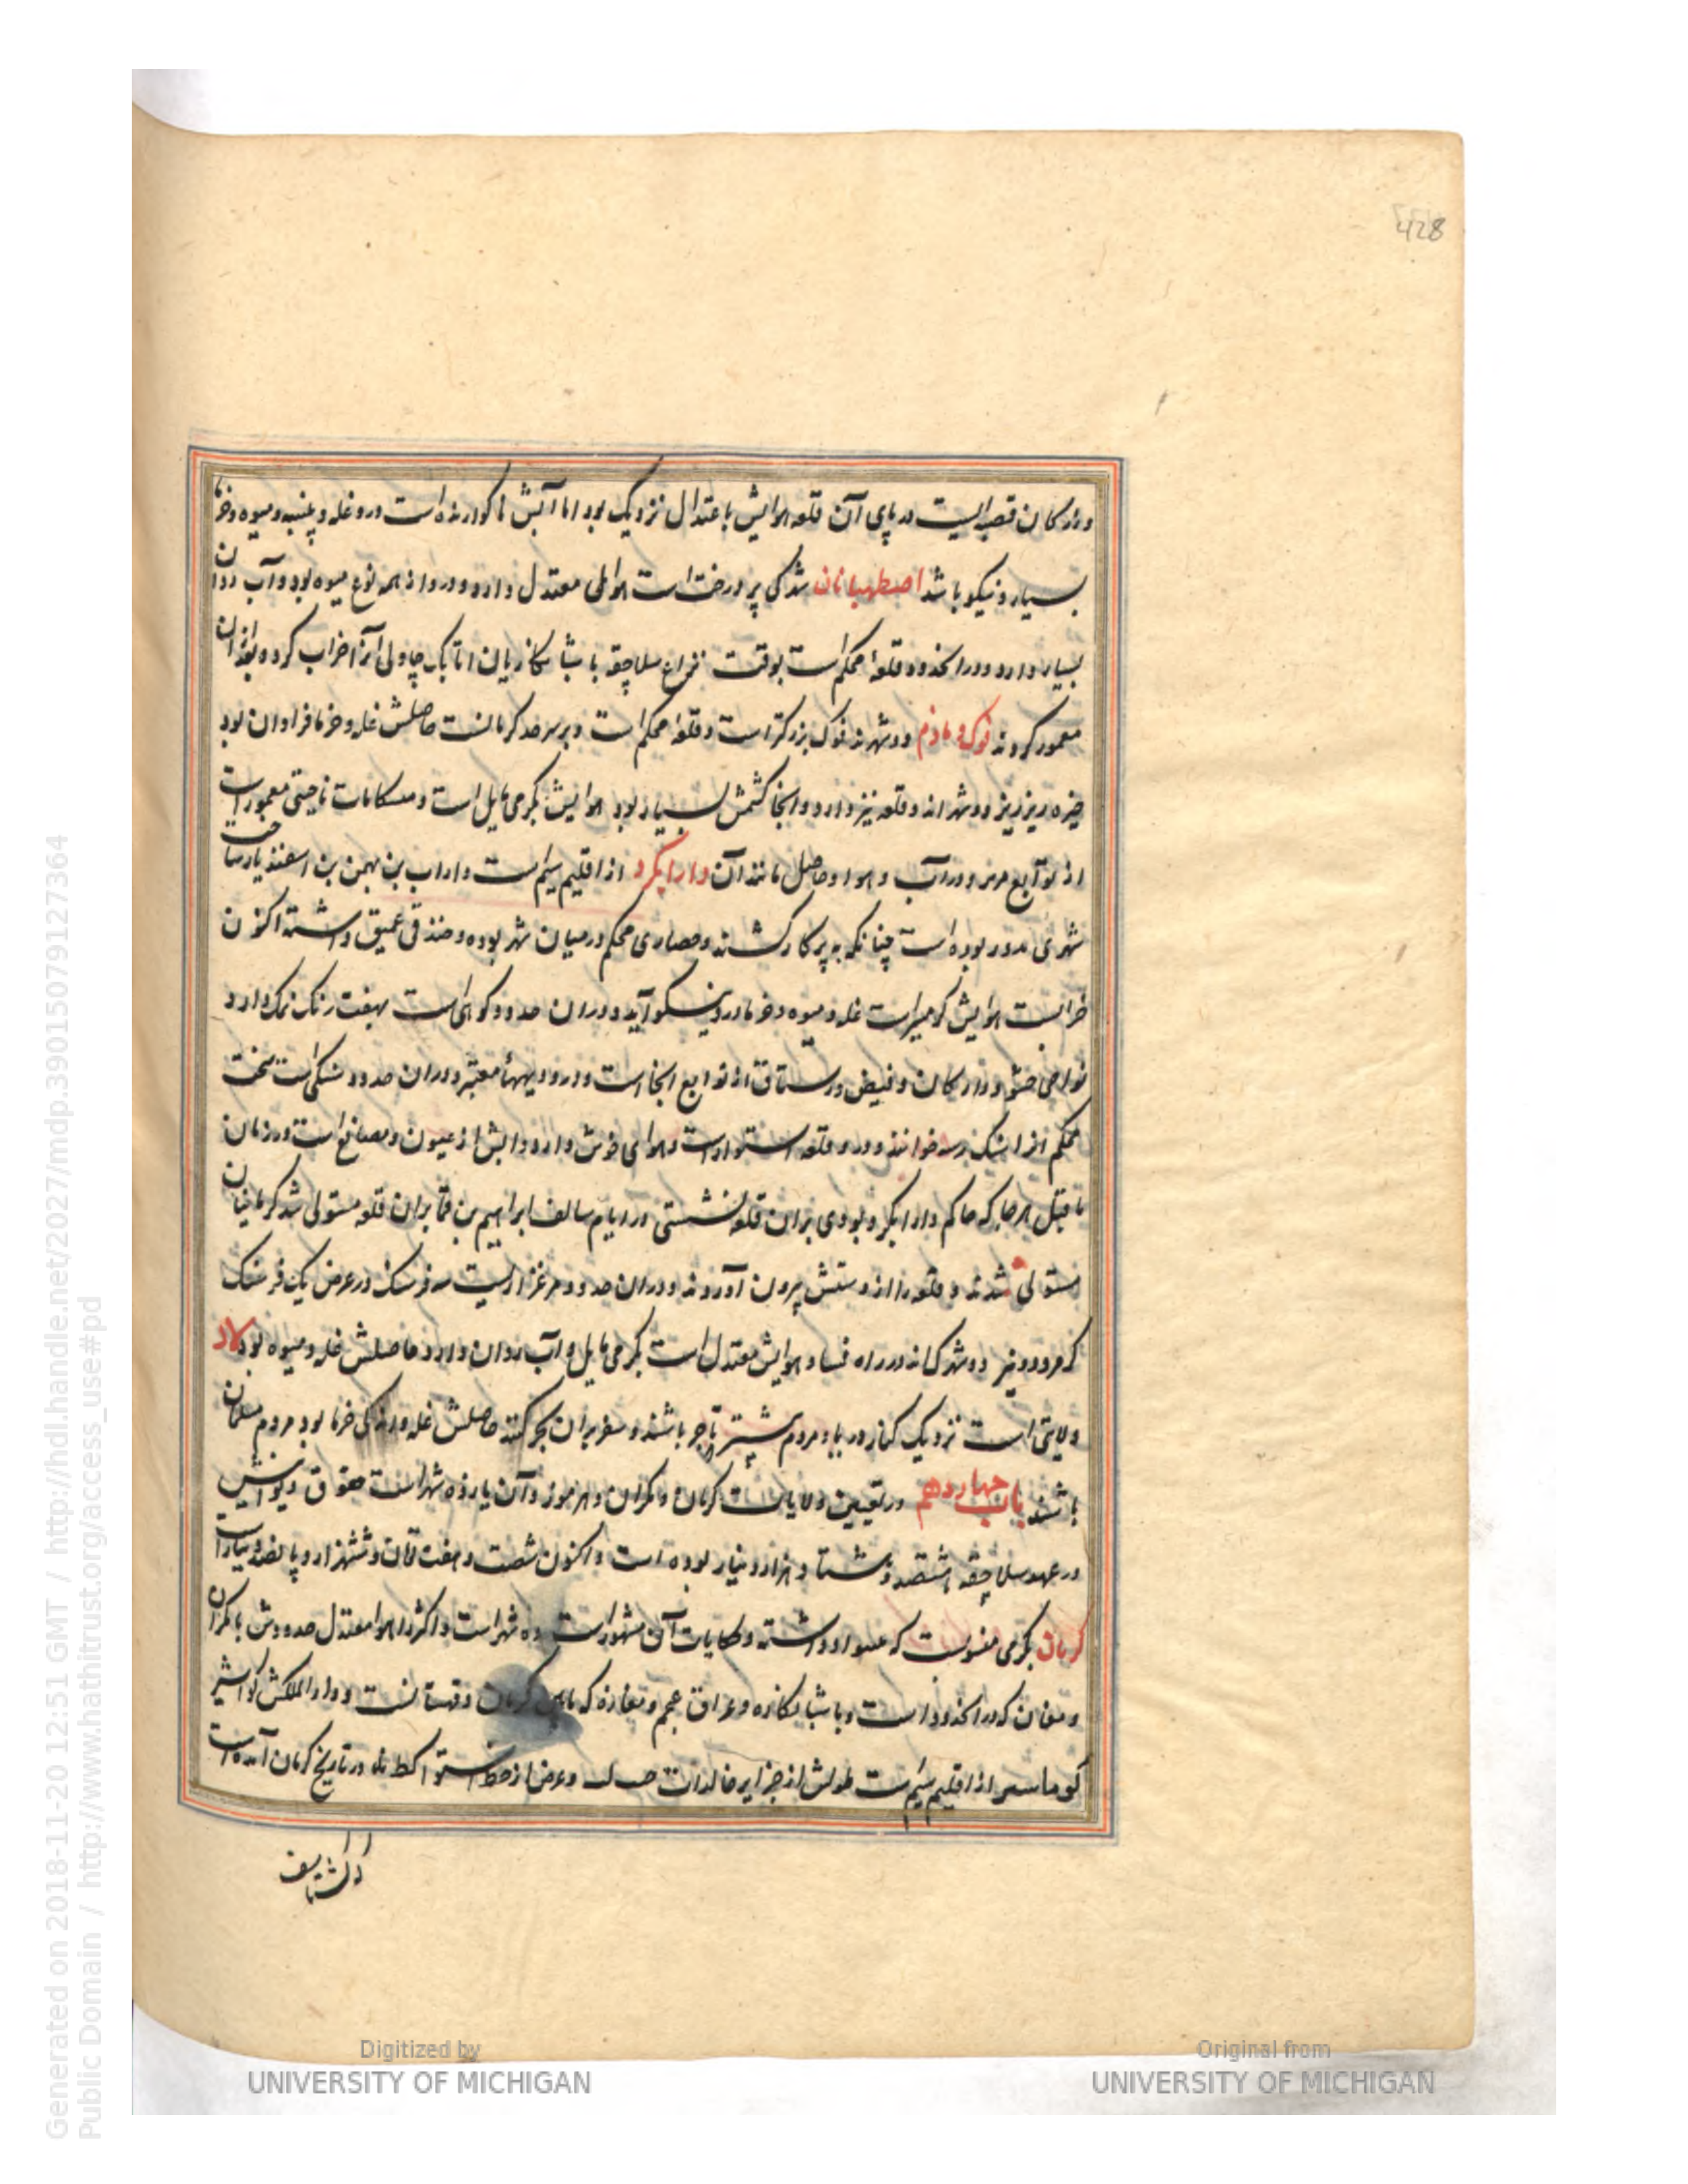 428
و زارکان قصبه ایست در پای آن قلعه هوایش باعتدال نزدیک بود اما آبش ناکوارنده است درو غله و پنبه و میوه و خرما
بسیار و نیکو باشد اصطهبانان شهرکی پر درخت است هوای معتدل دارد و درو از همه نوع میوه بود و آب روان
بسیار دارد و در آنحدود قلعهٔ محکم است بوقت نزاع سلاجقه با شبانکاریان اتابک چاولی آنرا خراب کرد و بعد از آن
معمور کردند و دو شهرند بزرکتر است و قلعهٔ محکم است و بر سر حد کرمانست حاصلش غله و خرما فراوان بود
خیره و نیریز دو شهر اند و قلعه نیز دارد و آنجا کشمش بسیار بود هوایش بکرمی مایل است و مسکانات ناحیتی معمور است
از توابع و در آب و هوا و حاصل مانند آن دارابگرد از اقلیم سیم است داراب بن بهمن بن اسفندیار ساخت
شهری مدور بوده است چنانکه به پرکار کشند و حصاری محکم در میان شهر بوده و خندقی عمیق داشته اکنون
خرابست هوایش کرمسیر است غله و میوه و خرما درو نیکو آید و در آن حدود کوهی است بهفت رنک نمک دارد
نواحی و زارکان و و رستاق از توابع آنجا است و درو دیههاء معتبر و در آن حدود تنکی است سخت
محکم آنرا تنک رنبه خوانند و درو قلعه استوار است و هوای خوش دارد و آبش از عیون و مصانع است و در زمان
ماقبل هر جا که حاکم دارابگرد بودی بر آن قلعه نشستی در ایام سالف ابراهیم بن بر آن قلعه مستولی شد کرمانیان
مستولی شدند و قلعه را از دستش بیرون آوردند و در آن حدود مرغزاریست سه فرسنک در عرض یک فرسنک
دو شهرک اند در راه فسا و هوایش معتدل است بکرمی مایل و آب روان دارد حاصلش غله و میوه بود لار
ولایتی است نزدیک کنار دریا و مردم بیشتر تاجر باشند و سفر بر آن بحر کنند حاصلش غله و اندکی خرما بود مردم مسلمان
باشند باب چهاردهم در تعیین ولایات کرمان و مکران و هرموز و آن پازده شهر است حقوق دیوانیش
در عهد سلاجقه هشتصد و هشتاد هزار دینار بوده است و اکنون شصت و هفت تومان و ششهزار و پانصد دینار است
کرمان بکرمی منسوبست که داشته و حکایات آن مشهور است و ده شهر است و اکثر را هوا معتدل حدودش با مکران
و که در آنحدود است و با شبانکاره و عراق عجم و مفازه که مابین کرمان و قهستانست و دار الملکش کواشیر
از اقلیم سیم است طولش از جزایر خالدات و عرض از خط استوا در تاریخ کرمان آمده است
Digitized by UNIVERSITY OF MICHIGAN
Original from UNIVERSITY OF MICHIGAN
Generated on 2018-11-20 12:51 GMT / http://hdl.handle.net/2027/mdp.39015079127364
Public Domain / http://www.hathitrust.org/access_use#pd